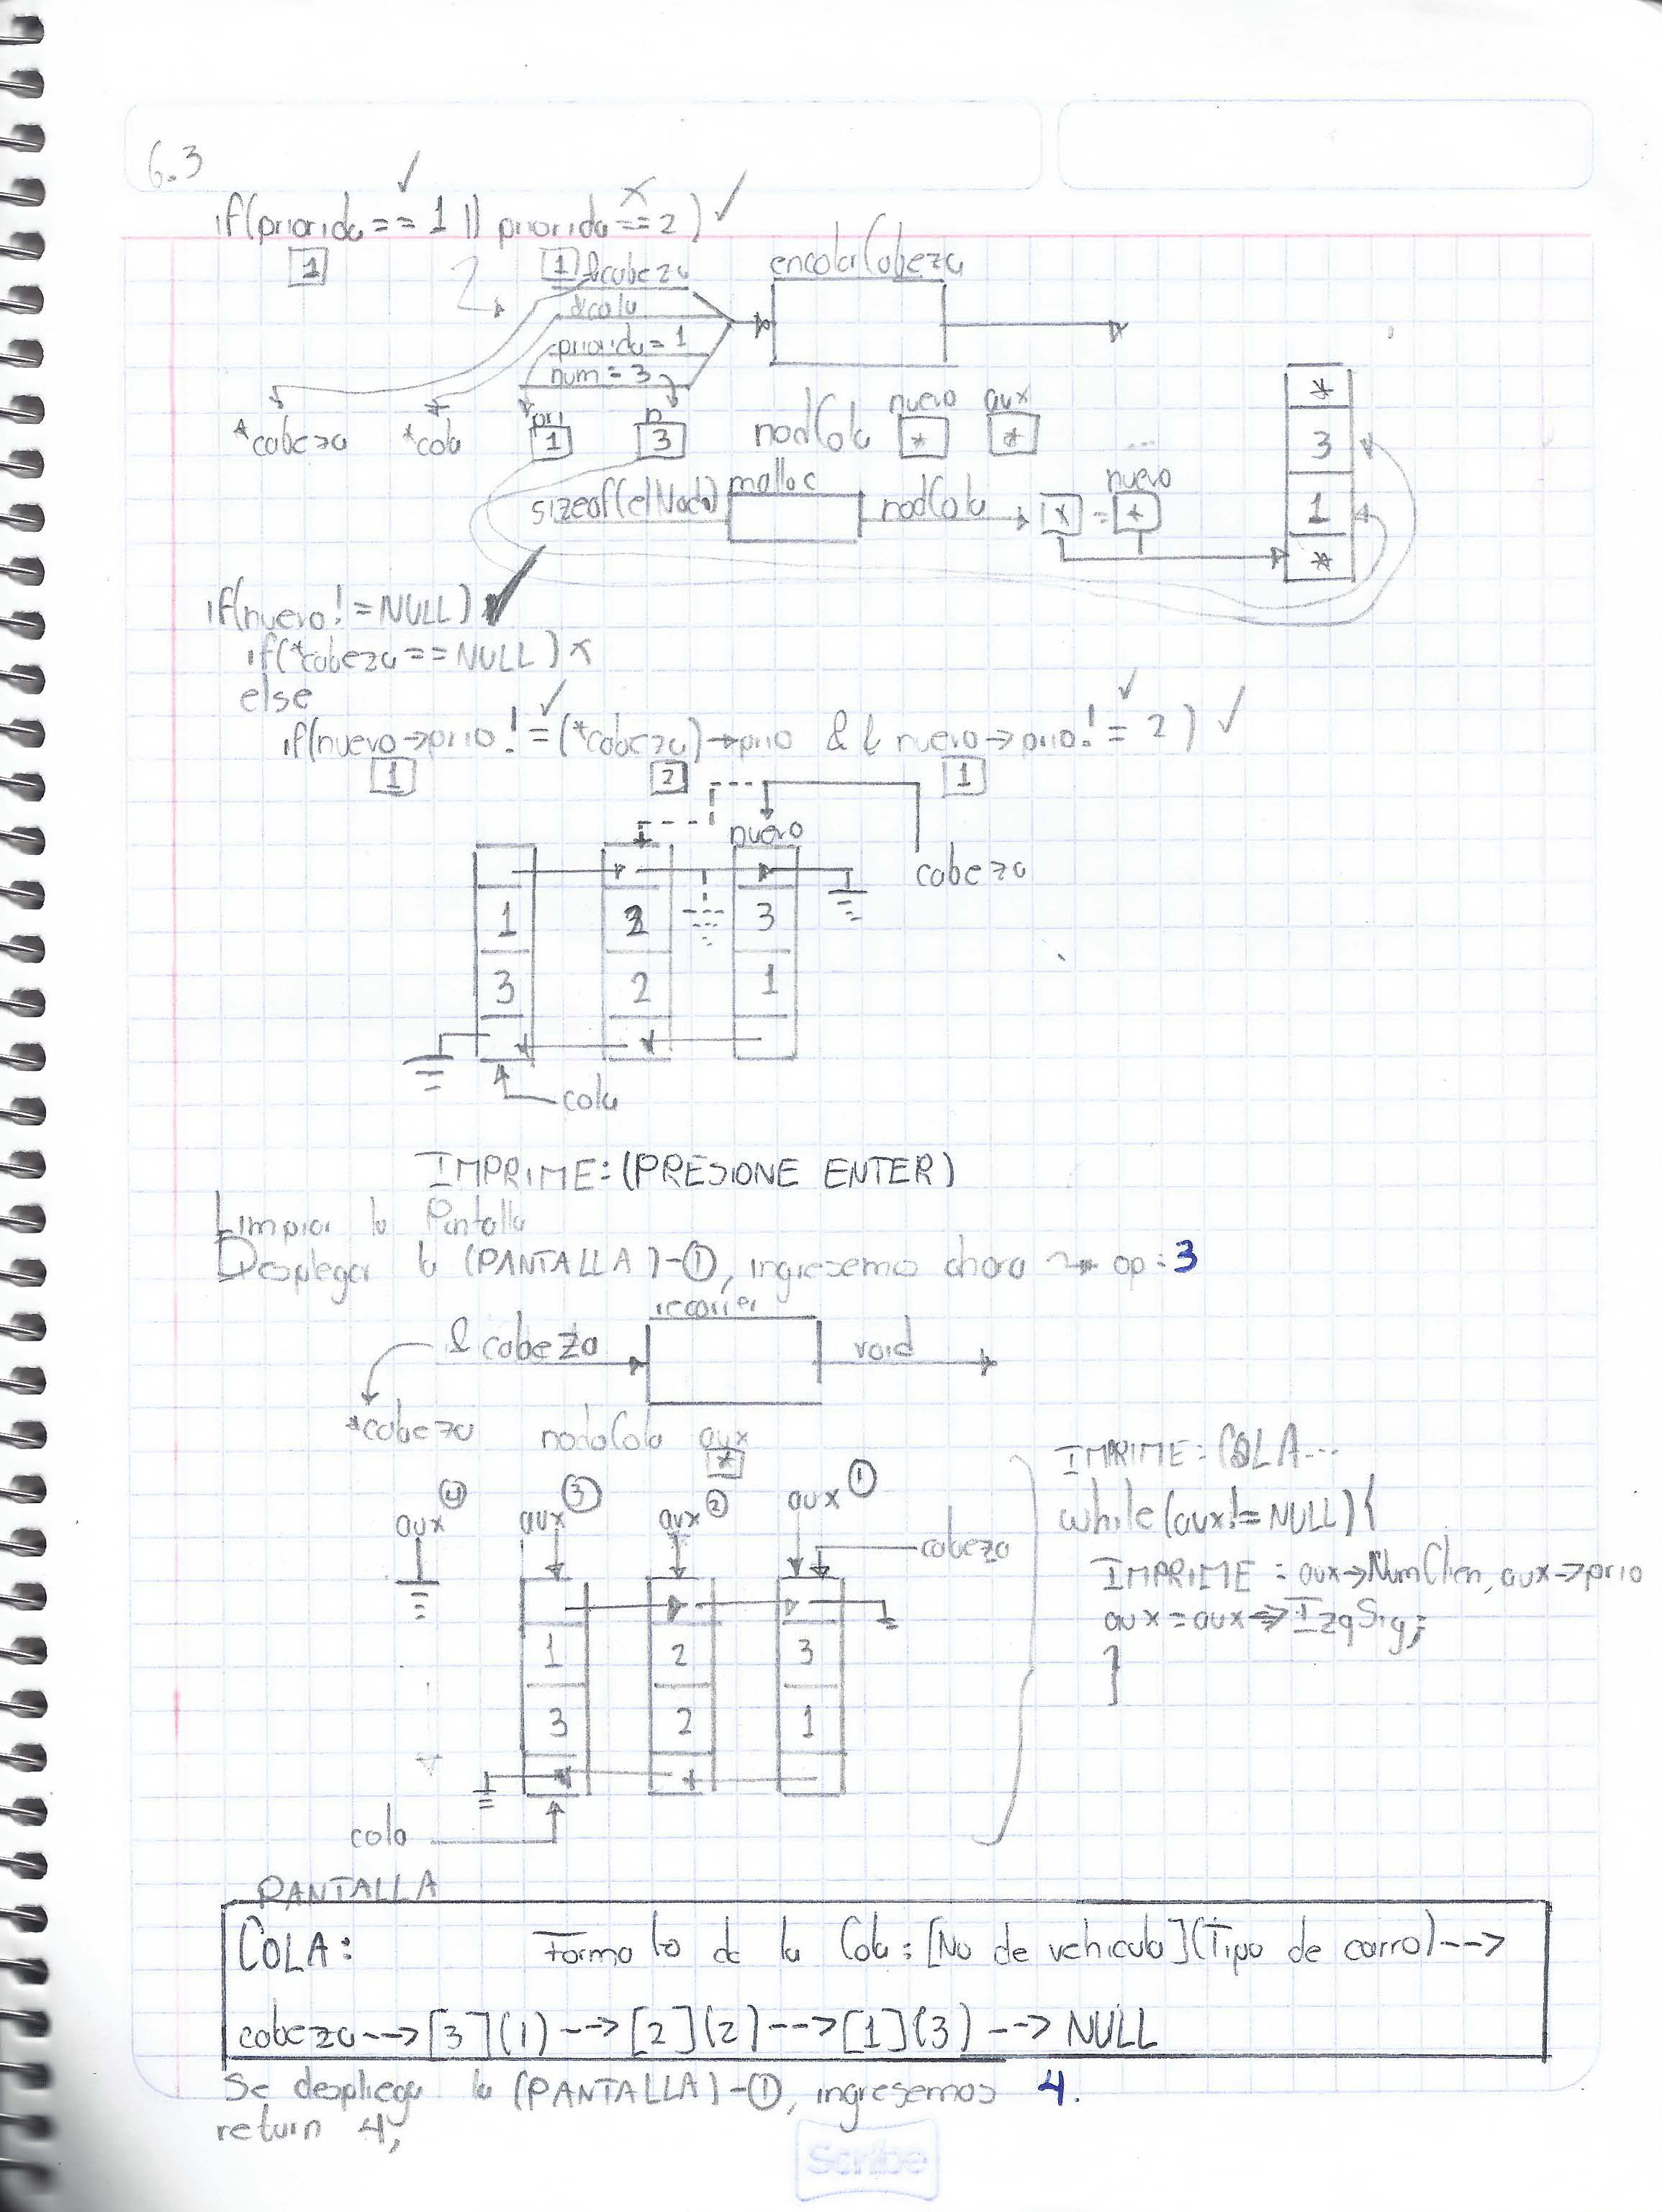 6.3
if(priorida == 1 || priorida == 2) ✓
1
1 &cabeza
encolarCabeza
&cola
priorida = 1
num = 3
*cabeza *cola pri 1 n 3 nodCola nuevo * aux *
sizeof(elNodo) malloc nodCola * = nuevo *
*
3
1
*
if(nuevo != NULL) ✓
if(*cabeza == NULL) x
else
if(nuevo->prio != (*cabeza)->prio && nuevo->prio != 2) ✓
1 2 1
nuevo
cabeza
1 2 3
3 2 1
cola
IMPRIME: (PRESIONE ENTER)
Limpiar la Pantalla
Desplegar la (PANTALLA)-①, ingresemos ahora ~> op: 3
recorrer
&cabeza void
*cabeza nodoCola aux *
IMPRIME: COLA...
aux④ aux③ aux② aux①
while(aux != NULL){
cabeza
IMPRIME: aux->NumClien, aux->prio
aux = aux->IzqSig;
}
1 2 3
3 2 1
cola
PANTALLA
COLA: Formato de la Cola: [No de vehiculo](Tipo de carro)-->
cabeza-->[3](1)-->[2](2)-->[1](3)-->NULL
Se despliega la (PANTALLA)-①, ingresemos 4.
return 4;
Scribe